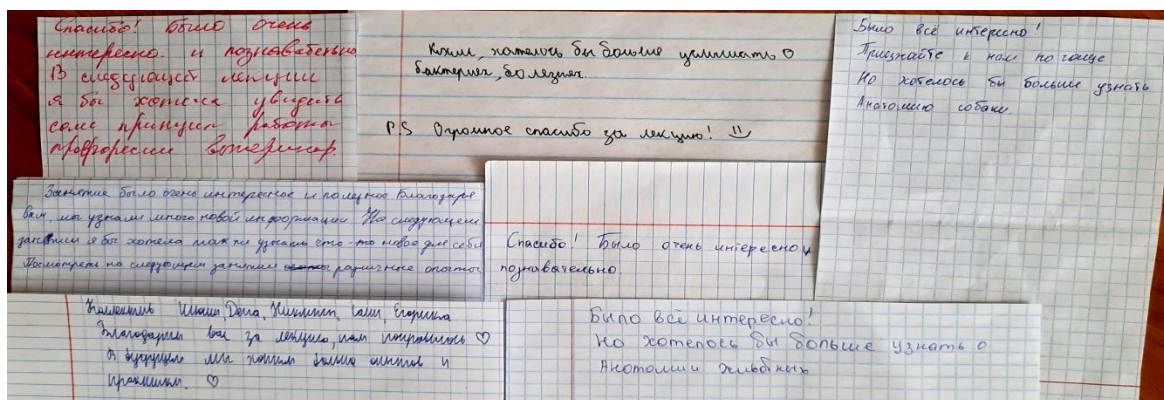 Спасибо! Было очень
интересно и познавательно
В следующей лекции
я бы хотела увидеть
само принцип работы
профоресии ветеринар.
хотелось бы больше услышать о
бактериях, болезнях.
P.S Огромное спасибо за лекцию!
Было всё интересно!
Приезжайте к нам по чаще
Но хотелось бы больше узнать
Анатомию собаки.
Занятие было очень интересное и полезное Благодаря
вам, мы узнали много новой информации На следующем
занятии я бы хотела так же узнать что-то новое для себя
Посмотреть на следующем занятии различные опыты
Спасибо! Было очень интересно и
познавательно.
Коллектив Даша, Никиты, Саши, Егорика
Благодарим вас за лекцию, нам понравилось ♡
В будущем мы хотим больше опытов и
практики. ♡
Было всё интересно!
Но хотелось бы больше узнать о
Анотомии живтных